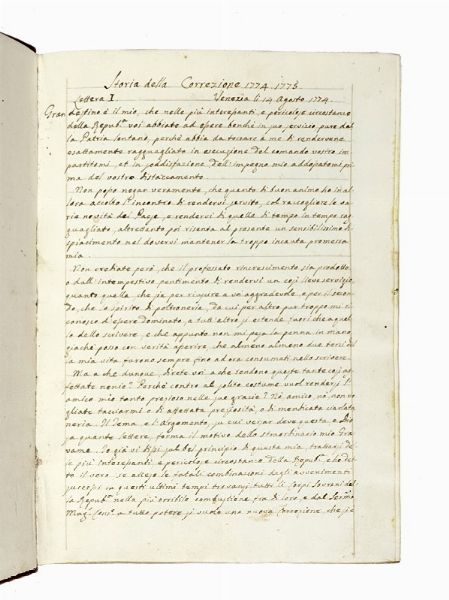 Storia della Correzione 1774. 1775.
Lettera I. Venezia li 14 Agosto 1774.
Gran destino è il mio, che nelle più interessanti, e pericolose circostanze
della Repub.ª voi abbiate ad essere benchè in suo servizio pure dal
la Patria lontano, perchè abbia da toccare à me di renderuene
esattamente ragguagliato in esecuzione del comando vostro im
partitomi, et in soddisfazione dell'impegno mio addossatomi pri
ma del vostro distaccamento.
Non posso negar veramente, che quanto di buon animo hò in al
lora accolto l'incontro di rendervi servito, col raccogliere le va
rie novità del Paese, e rendervi di quelle di tempo in tempo rag
guagliato, altrettanto poi risenta al presente un sensibilissimo di
spiacimento nel dovervi mantener la troppo incauta promessa
mia.
Non crediate però, che il professato rincrescimento sia prodotto
o dall'intempestivo pentimento di rendervi un così lieve servizio
quanto quello, che sia per riuscire a voi aggradevole, e per il secon
do, che lo spirito di poltroneria, da cui per altro pur troppo mi
conosco d'essere dominato, a tutt'altro si estende fuori che a quel
lo dello scrivere, e che appunto non mi pesa la penna in mano,
giachè posso con verità asserire, che almeno almeno due terzi del
la mia vita furono sempre fino ad ora consumati nello scrivere.
Ma a che dunque, direte voi a che tendono queste tante così af
fettate nenie? Perchè contro al solito costume vuol rendersi l'
amico mio tanto prezioso nelle sue grazie? Nò amico, nò, non vo
gliate tacciarmi o di affettata preziosità, o di mendicata ciarlata
neria. Il Tema, e l'Argomento, su cui versar deve questa, e
quante lettere, forma il motivo dello straordinario mio Gra
vame. Io già vi dissi sul bel principio di questa mia, trattarsi de
le più interessanti, e pericolose circostanze della Repub.ª
il vero, se attese le fatali combinazioni degli avvenimenti
successi in questi ultimi tempi trovansi tutti li Corpi Sovrani del
la Repub.ª nella più orribile combustione fra di loro, e dal Seren.mo
Magg.r Cons.º a tutto potere si vuole una nuova Correzione, che sia